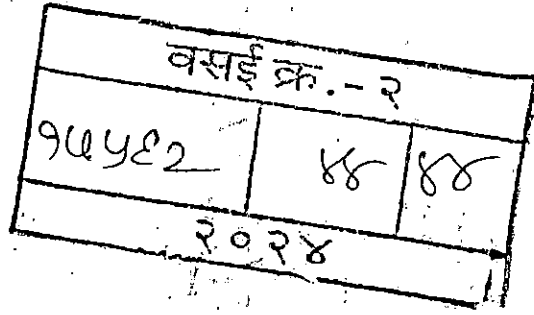 वसई क्र.-२
१५५६२ ४४ ४४
२०२४